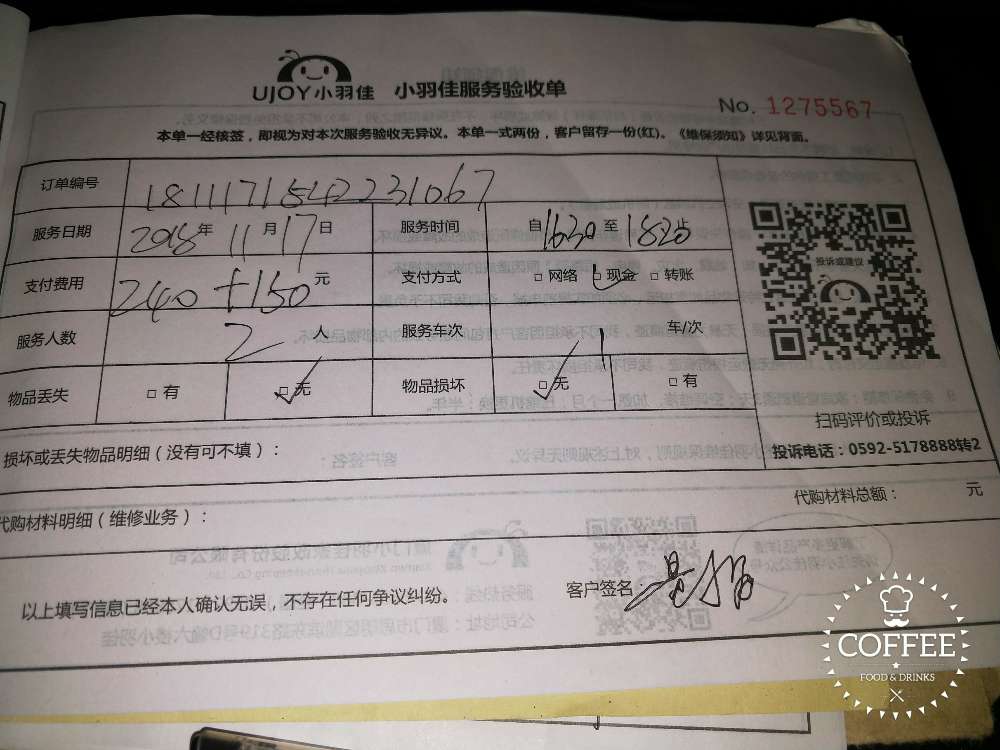 UJOY小羽佳 小羽佳服务验收单
No. 1275567
本单一经核签，即视为对本次服务验收无异议。本单一式两份，客户留存一份(红)。《维保须知》详见背面。
订单编号 1811171542231067
服务日期 2018年11月17日 服务时间 自1630至1820止
支付费用 240+150元 支付方式 □网络 □现金 □转账
服务人数 2人 服务车次 1车/次
物品丢失 □有 □无 物品损坏 □无 □有
投诉或建议
扫码评价或投诉
投诉电话：0592-5178888转2
损坏或丢失物品明细（没有可不填）：
代购材料明细（维修业务）： 代购材料总额： 元
以上填写信息已经本人确认无误，不存在任何争议纠纷。 客户签名
COFFEE
FOOD & DRINKS